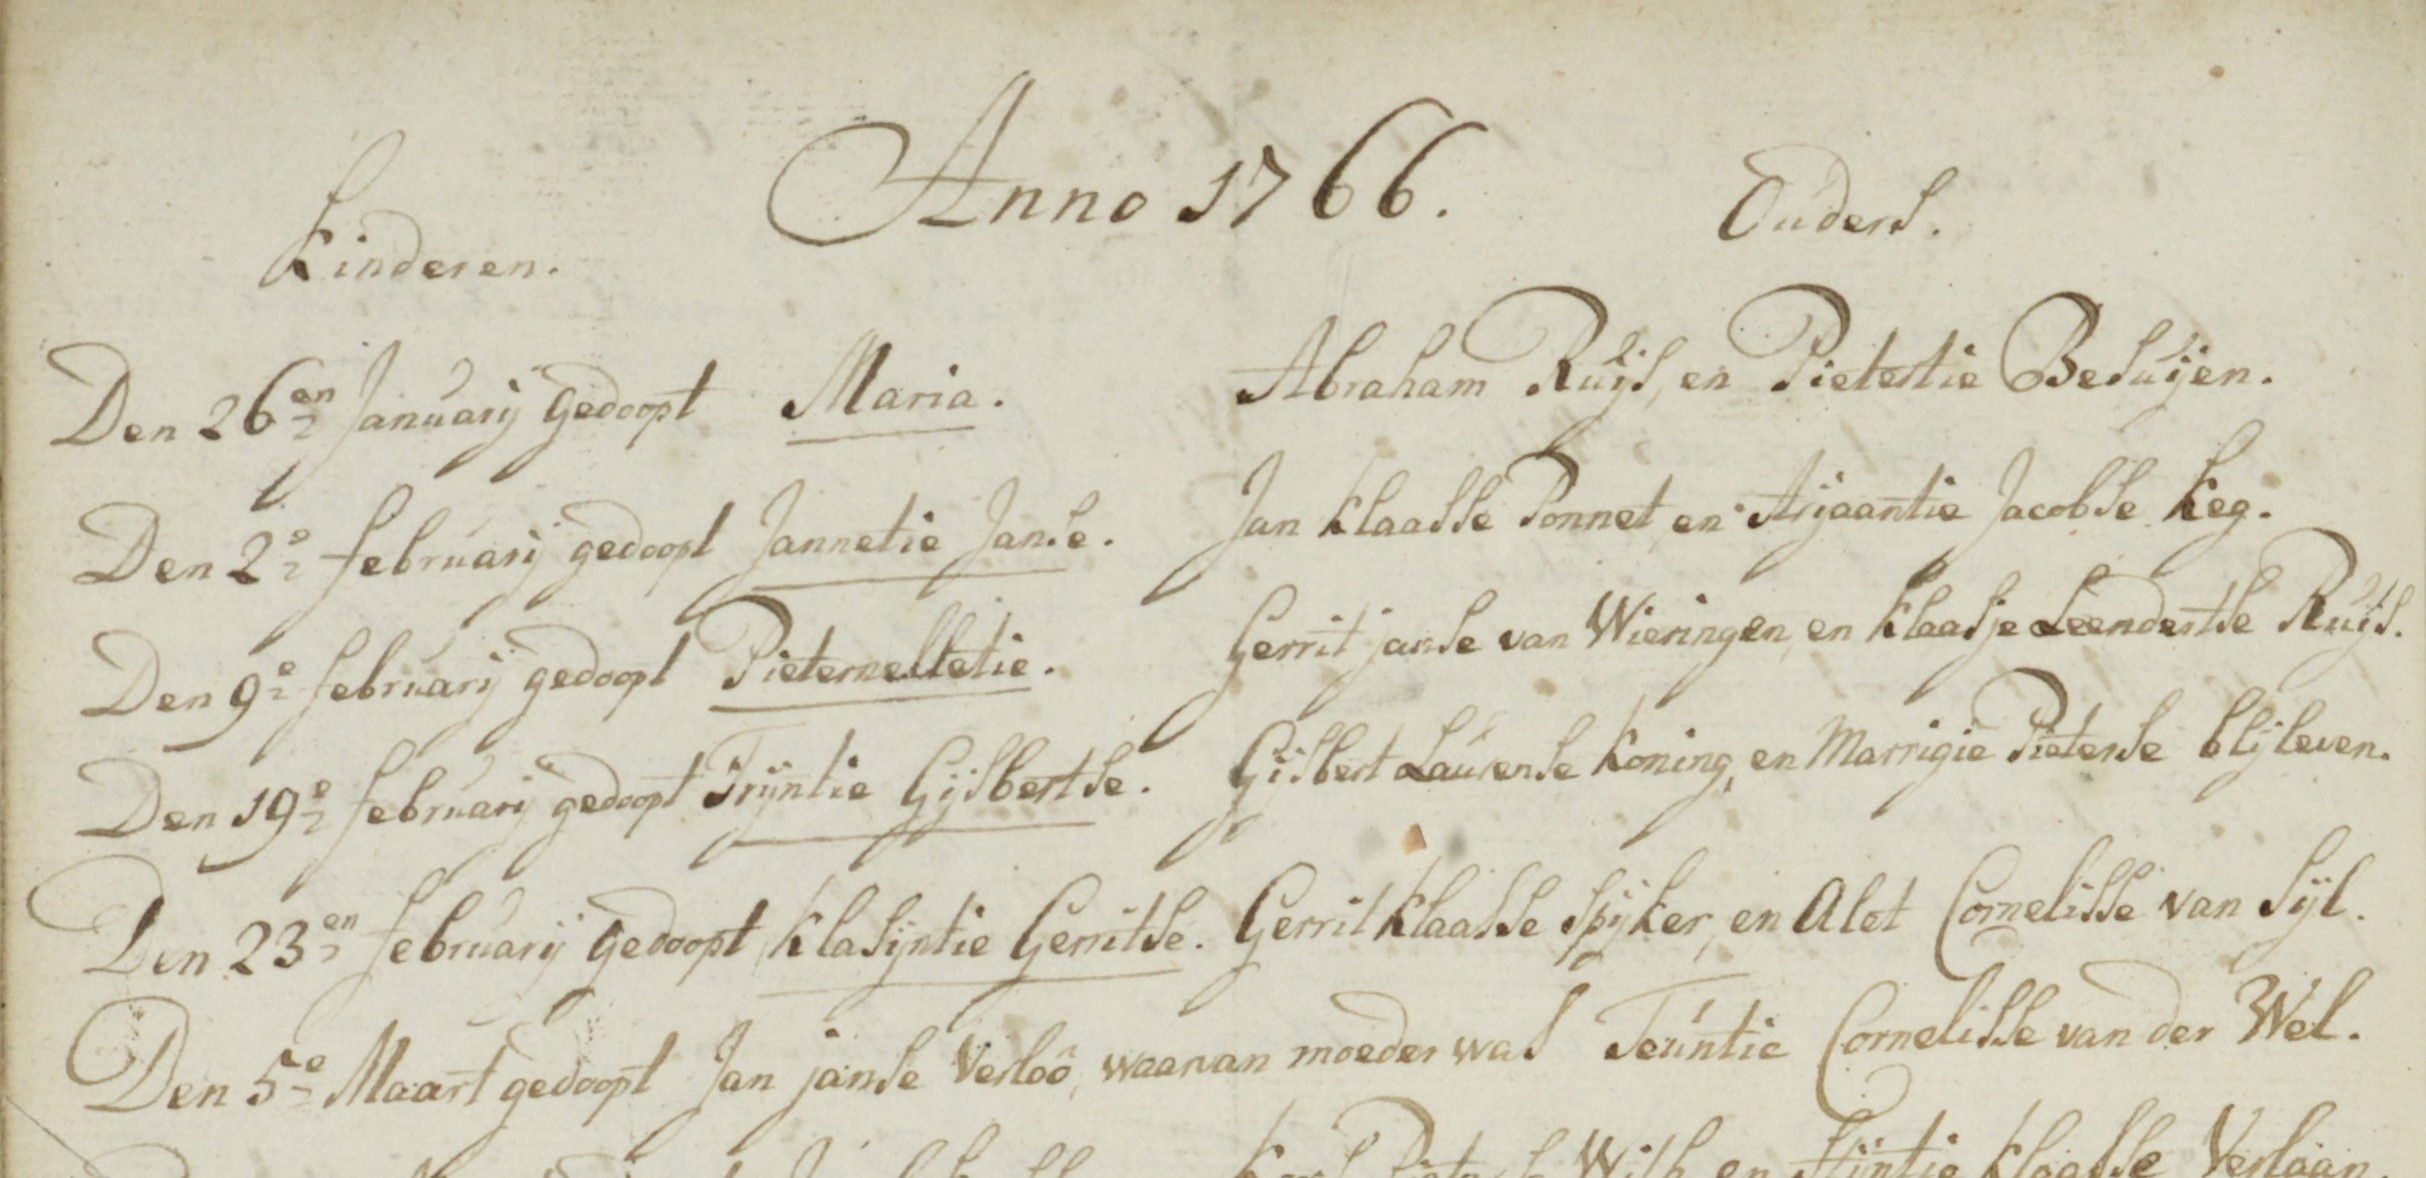 Anno 1766.
Kinderen. Ouders.
Den 26en Januarij gedoopt Maria. Abraham Ruijs, en Pietertie Besuijen.
Den 2e februarij gedoopt Jannetie Janse. Jan Klaasse Ponnet, en Arijaantie Jacobse Keg.
Den 9e februarij gedoopt Pieternelletie. Gerrit janse van Wieringen, en Klaasje Leendertse Ruijs.
Den 19e februarij gedoopt Trijntie Gijsbertse. Gijsbert Laurense Koning, en Marrigie Pieterse blijleven.
Den 23en februarij gedoopt Klasijntie Gerritse. Gerrit Klaasse Spijker, en Alet Cornelisse van Sijl.
Den 5e Maart gedoopt Jan janse Verloô, waarvan moeder was Teuntie Cornelisse van der Wel.
en Klaasse Verlaan.